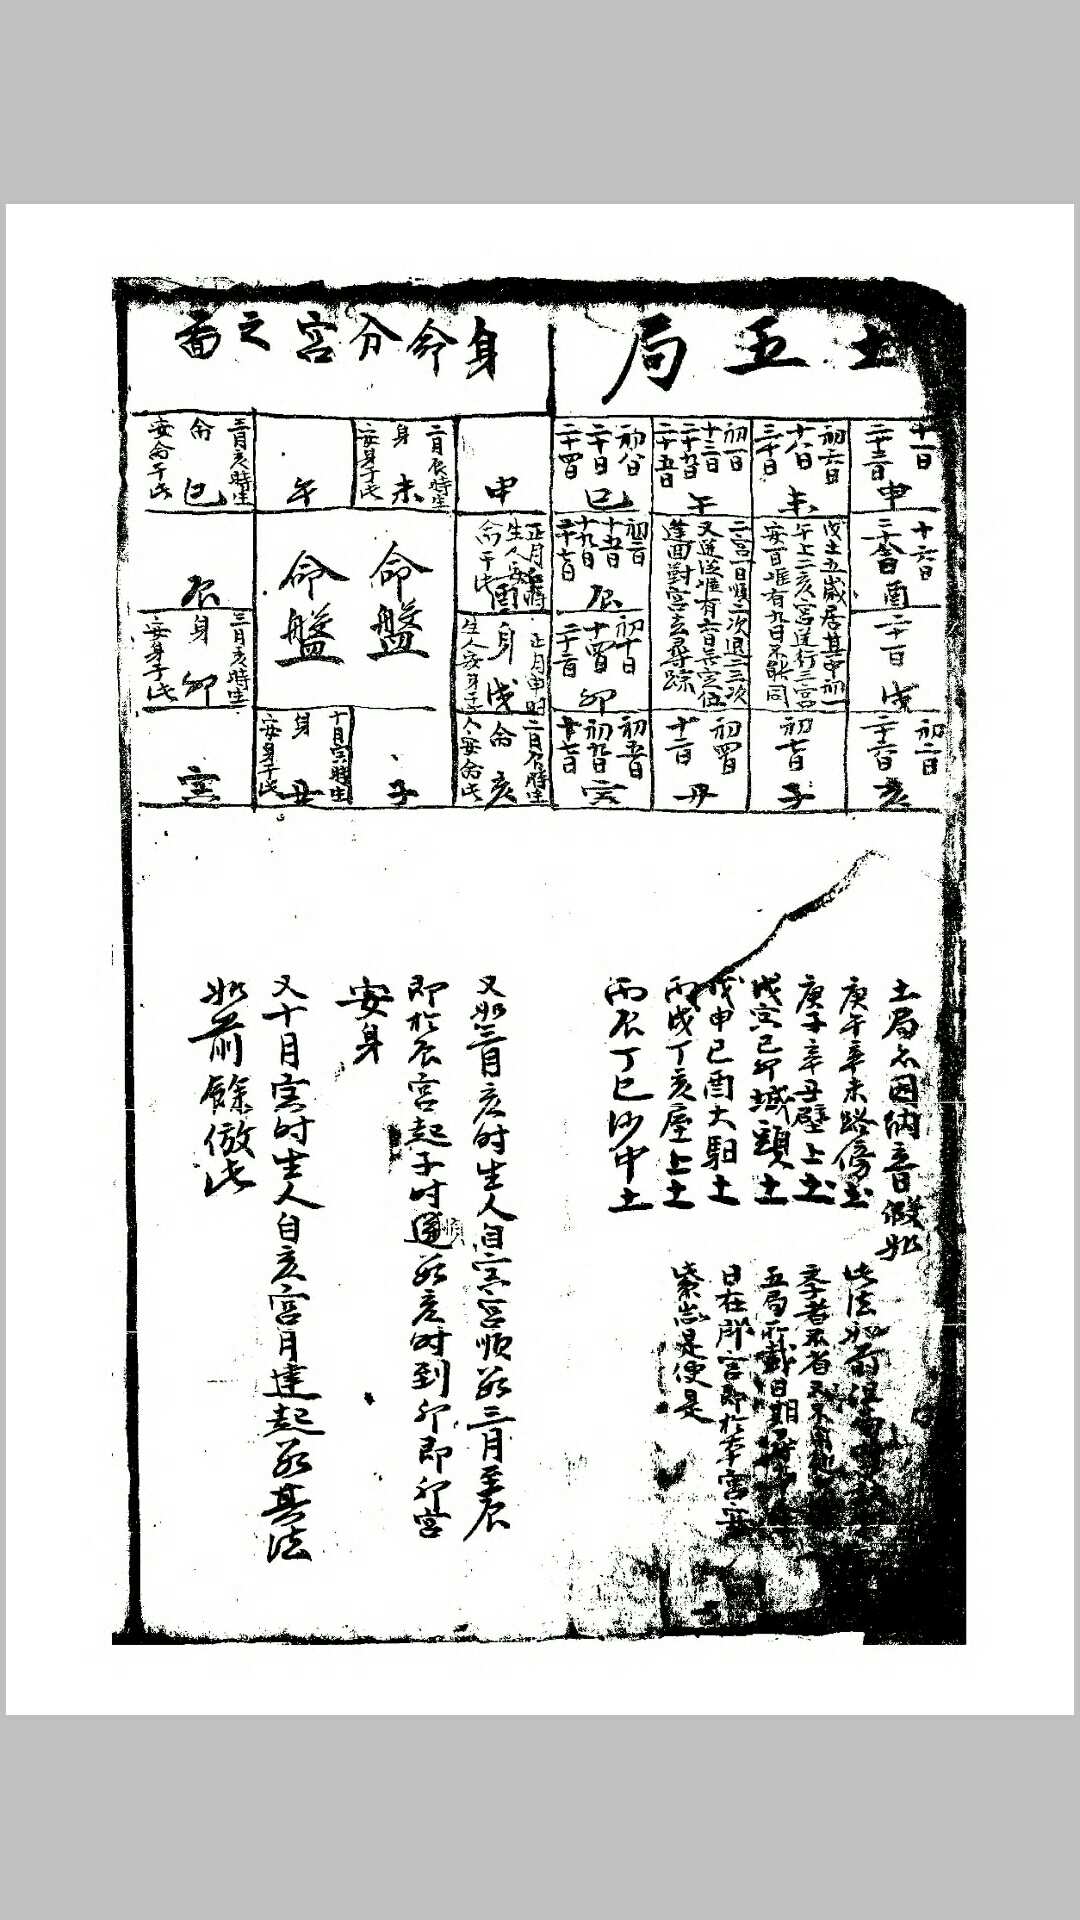 土五局
十一日
二十三日
申
初六日
十八日
三十日
未
初一日
十三日
二十九日
二十五日
午
初八日
二十日
二十四日
巳
十六日
酉
戊土五歲居其中初一
午上二亥宮逆行三宮
安一日唯有九日不能同
二宮一日順二次退三三次
又逆從惟有六日無定位
蓬回對宮立尋踪
初三日
十五日
十九日
二十七日
辰
二十一日
戌
初十日
十四日
二十二日
卯
初二日
二十六日
亥
初七日
子
初四日
十二日
丑
初五日
初九日
十七日
寅
身命分宮之啚
申
二月辰時生
身
未
安身于此
午
三月亥時生
命
巳
安命于此
正月申時
生人安
酉
命于此
命盤
命盤
辰
正月申時
身
戌
三月亥時生
身
卯
安身于此
二月辰時生
命
亥
人安命此
子
十月寅時生
身
丑
安身于此
寅
土局亦因納音假如
庚午辛未路傍土
庚子辛丑壁上土
戊寅己卯城頭土
戊申己酉大馹土
丙戌丁亥屋上土
丙辰丁巳沙中土
此法如前
李者不省又不
五局所載日期
日在那宮即於本宮安
紫微是便是
又如三月亥时生人自寅宮順数三月至辰
即於辰宮起子时逆順数亥时到卯即卯宮
安身
又十月寅时生人自亥宮月建起数其法
如前餘倣此